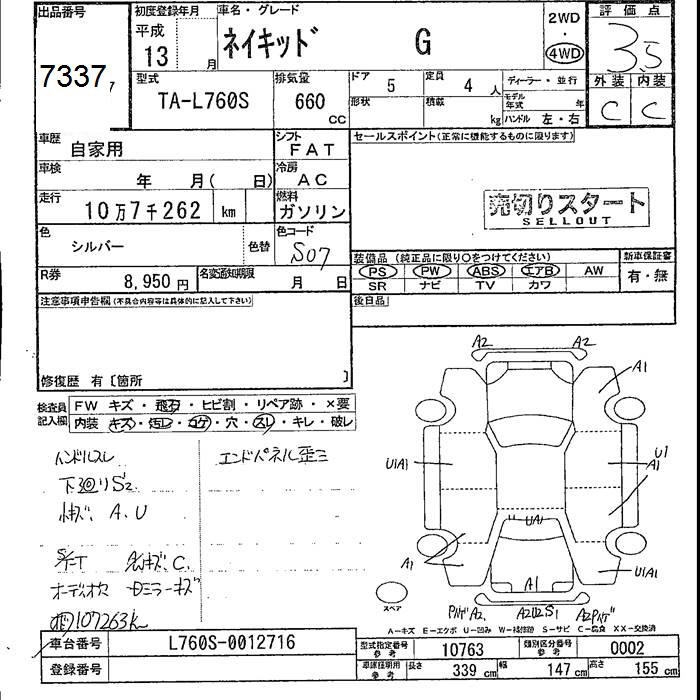 出品番号
7337 7
初度登録年月
平成
13 月
車名・グレード
ネイキッド G
2WD
・
4WD
評価点
3.5
外装 内装
C C
型式
TA-L760S
排気量
660
CC
ドア 5
定員 4 人
形状
積載 kg
ディーラー・並行
モデル年式 年
ハンドル 左・右
車歴
自家用
シフト
FAT
セールスポイント(正常に機能するものに限ります)
車検
年 月( 日)
冷房
AC
走行
10万7千262 km
燃料
ガソリン
売切りスタート
SELLOUT
色
シルバー
色替
色コード
S07
装備品 (純正品に限り〇をつけてください)
新車保証書
PS PW ABS エアB AW
有・無
SR ナビ TV カワ
R券
8,950円
名変通知期限
月 日
後日品
注意事項申告欄(不具合内容等は具体的に記入して下さい)
修復歴 有〔箇所 〕
検査員
記入欄
FW キズ・飛石・ヒビ割・リペア跡・×要
内装 キズ・汚レ・コゲ・穴・スレ・キレ・破レ
ハンドルスレ
エンドパネル歪ミ
下廻りS2
A、U
C、
107263k
A2 A2
A1
U1A1
U1
A1
UA1
A1
U1A1
A1
スペア
A2
A2U2S1
A-キズ E-エクボ U-凹み W-補修跡 S-サビ C-腐食 XX-交換済
車台番号
L760S-0012716
登録番号
型式指定番号
参考
10763
類別区分番号
参考
0002
車庫証明用
参考
長さ 339 cm
幅 147 cm
高さ 155 cm